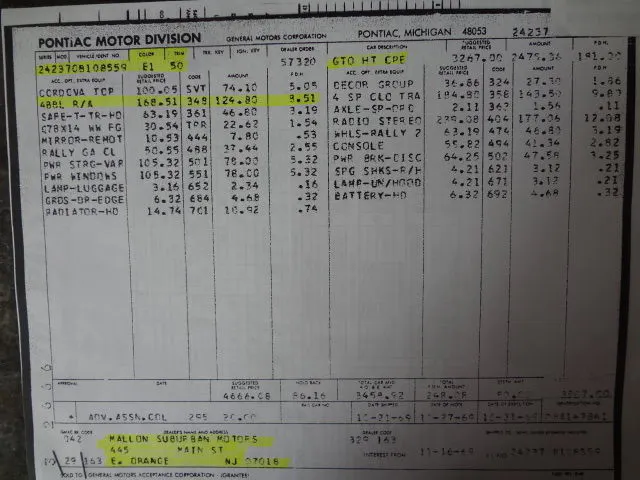 PONTIAC MOTOR DIVISION GENERAL MOTORS CORPORATION PONTIAC, MICHIGAN 48053 24237
SERIES MOD. VEHICLE IDENT NO COLOR TRIM TRK. KEY IGN. KEY DEALER ORDER CAR DESCRIPTION SUGGESTED RETAIL PRICE AMOUNT P.D.H.
242370B108559 E1 50 57320 GTO HT CPE 3267.00 2479.36 191.00
ACC. OPT. EXTRA EQUIP SUGGESTED RETAIL PRICE CODE AMOUNT P.D.H. ACC. OPT. EXTRA EQUIP SUGGESTED RETAIL PRICE CODE AMOUNT P.D.H.
CORDOVA TOP 100.05 SVT 74.10 5.05 DECOR GROUP 36.86 324 27.30 1.86
488L R/A 168.51 348 124.80 8.51 4 SP CLO TRA 184.80 358 143.50 9.87
SAFE-T-TR-HD 63.19 361 46.80 3.19 AXLE-SP-ORD 2.11 362 1.56 .11
G78X14 WW FG 30.54 TPR 22.62 1.54 RADIO STEREO 239.08 404 177.06 12.08
MIRROR-REMOT 10.53 444 7.80 .53 WHLS-RALLY 2 63.19 474 46.80 3.19
RALLY GA CL 50.55 488 37.44 2.55 CONSOLE 55.82 494 41.34 2.82
PWR STRG-VAR 105.32 501 78.00 5.32 PWR BRK-DISC 64.25 502 47.58 3.25
PWR WINDOWS 105.32 551 78.00 5.32 SPG SHKS-R/H 4.21 621 3.12 .21
LAMP-LUGGAGE 3.16 652 2.34 .16 LAMP-UN/HOOD 4.21 671 3.12 .21
GRDS-DR-EDGE 6.32 684 4.68 .32 BATTERY-HD 6.32 692 4.68 .32
RADIATOR-HD 14.74 701 10.92 .74
APPROVAL DATE SUGGESTED RETAIL PRICE HOLD BACK TOTAL CAR AND
4666.08 86.16 3459.92 248.08
* ADV.ASSN.COL 295 20.00 10-21-69 10-27-69 10-31-69
GMAC BR. CODE DEALER'S NAME AND ADDRESS DEALER CODE
042 MALLON SUBURBAN MOTORS 329 163
445 MAIN ST
29 163 E. ORANGE NJ 07018 INTEREST FROM 11-16-69
SOLD TO GENERAL MOTORS ACCEPTANCE CORPORATION - (GRANTEE)